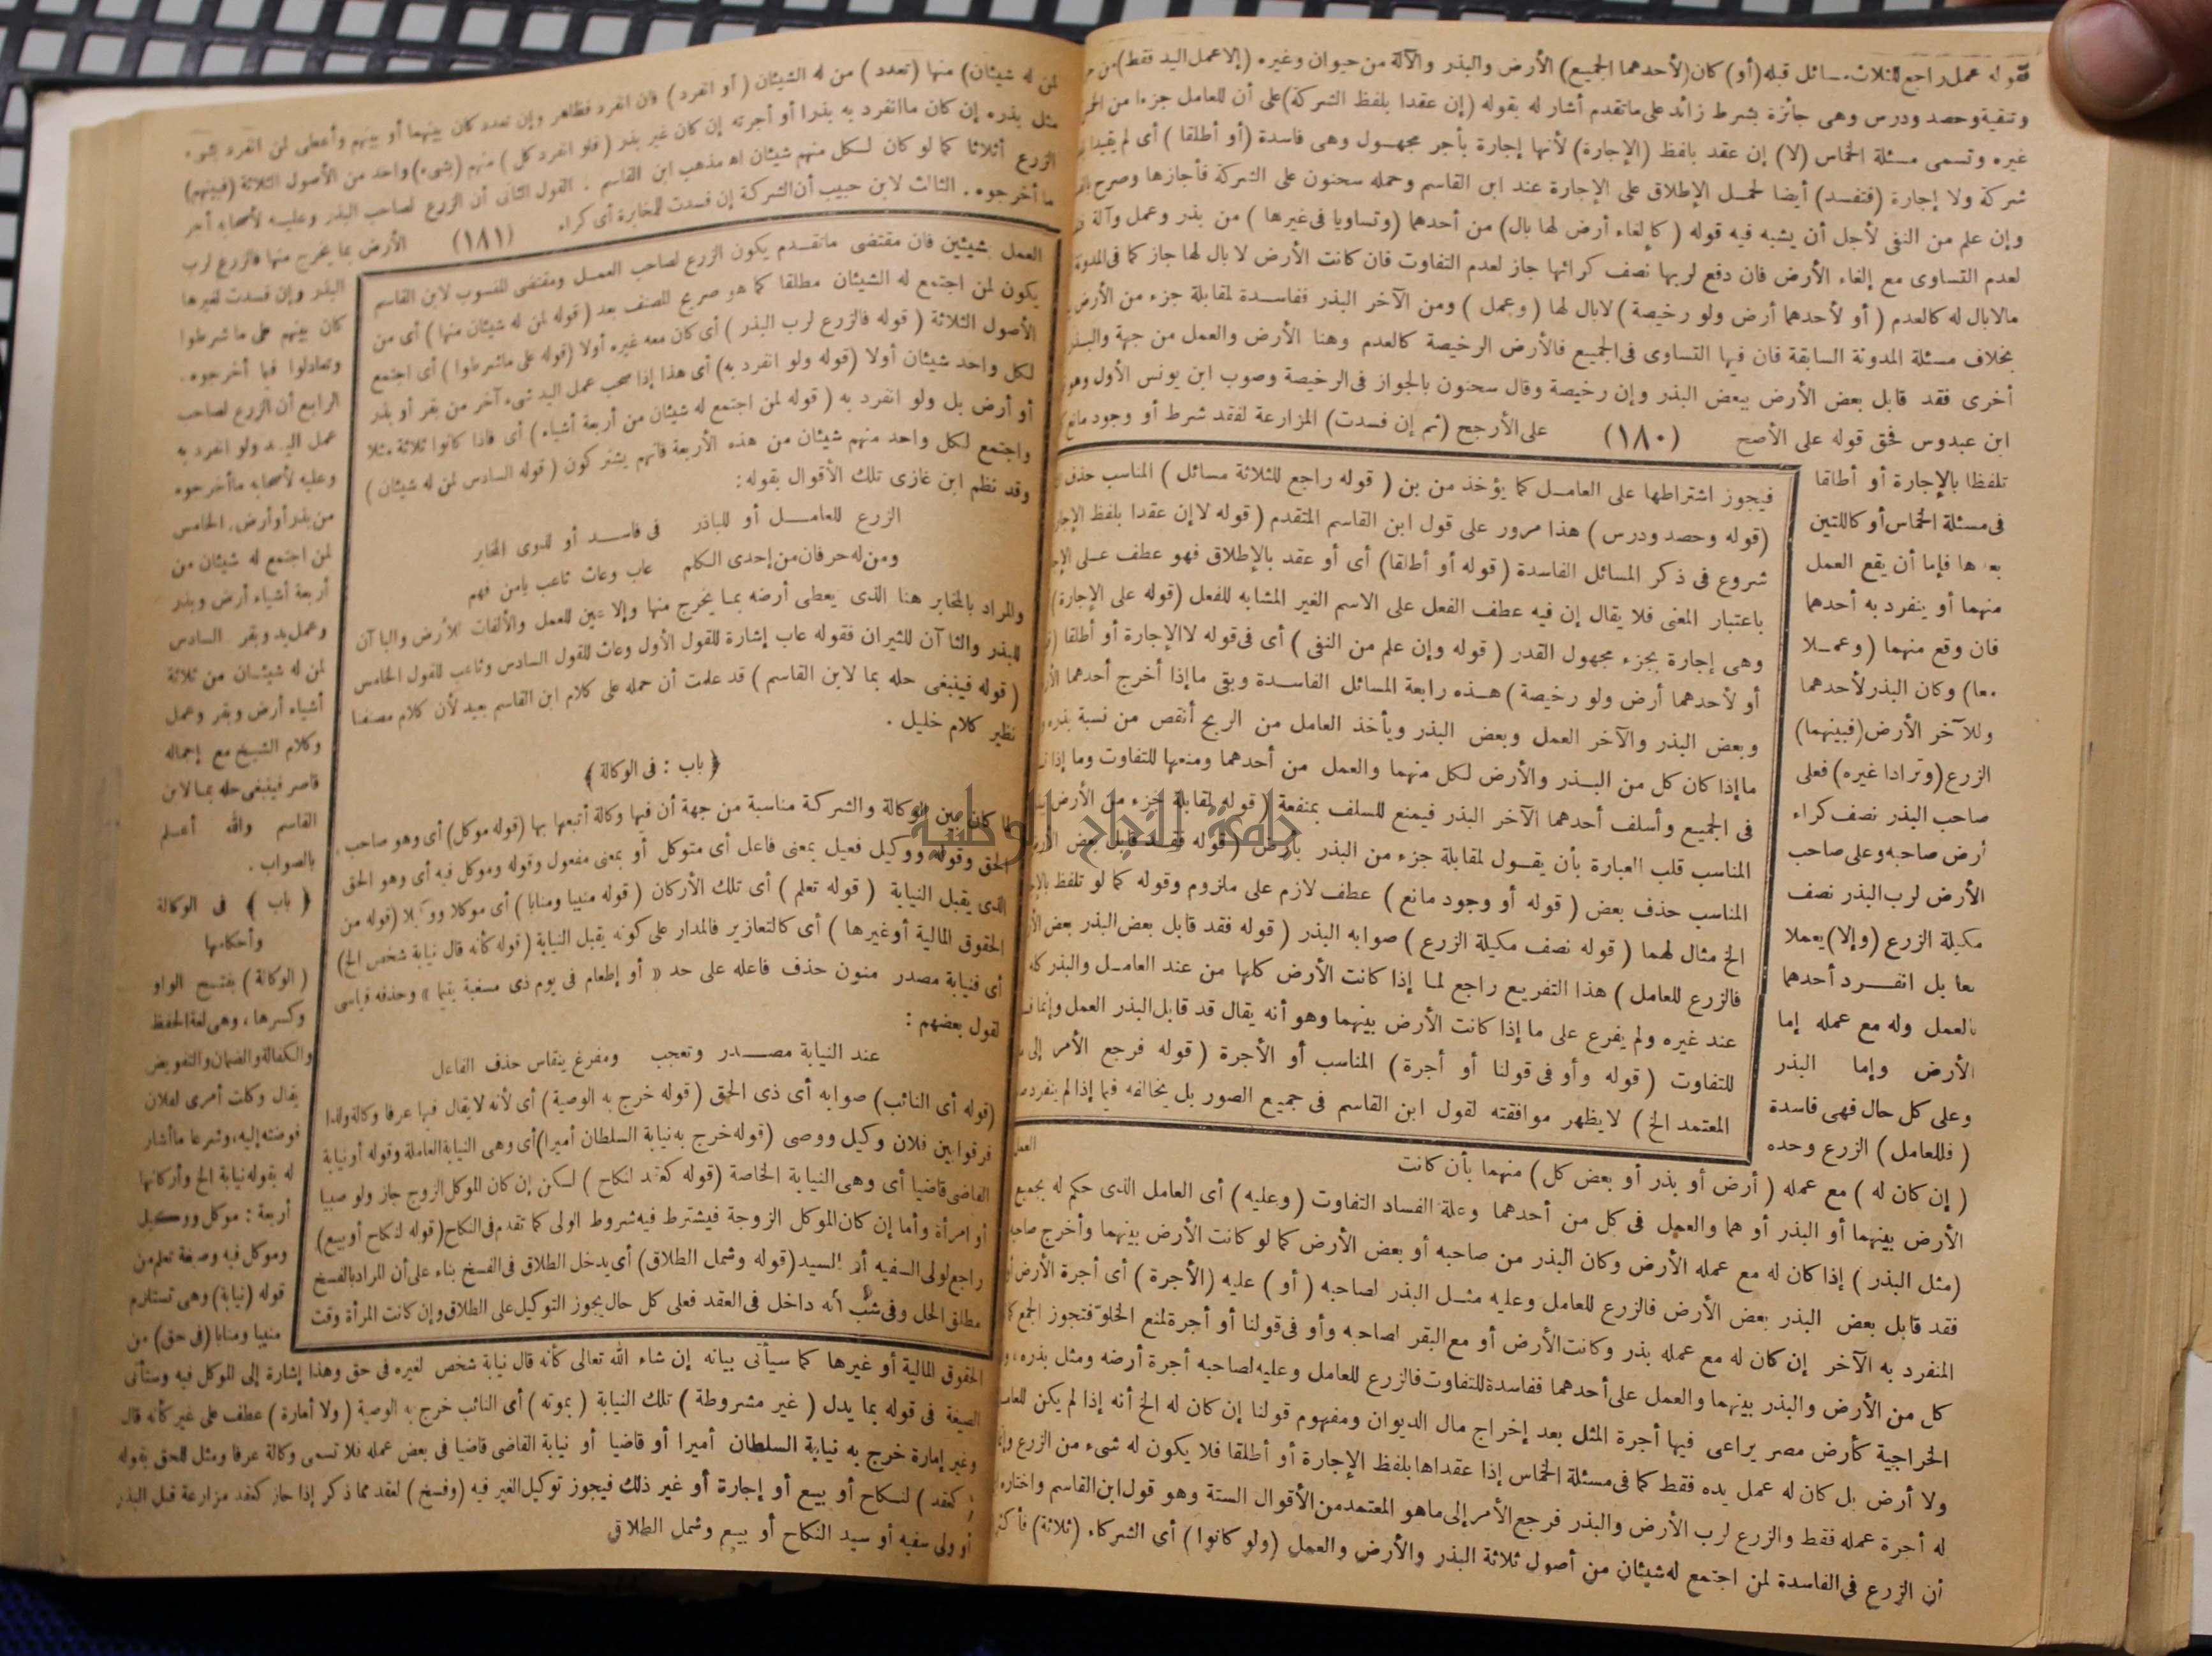 فقوله عمل راجع للثلاث مسائل قبله (أو) كان (لأحدهما الجميع) الأرض والبذر والآلة من حيوان وغيره (إلا عمل اليد فقط) من
وتنقية وحصد ودرس وهى جائزة بشرط زائد على ما تقدم أشار له بقوله (إن عقدا بلفظ الشركة) على أن للعامل جزءا من
غيره وتسمى مسئلة الخماس (لا) إن عقد بلفظ (الإجارة) لأنها إجارة بأجر مجهول وهى فاسدة (أو أطلقا) أى لم يقيدا
شركة ولا إجارة (فتفسد) أيضا لحمل الإطلاق على الإجارة عند ابن القاسم وحمله سحنون على الشركة فأجازها وصرح
وإن علم من النفى لأجل أن يشبه فيه قوله (كإلغاء أرض لها بال) من أحدهما (وتساويا فى غيرها) من بذر وعمل وآلة
لعدم التساوى مع إلغاء الأرض فان دفع لربها نصف كرائها جاز لعدم التفاوت فان كانت الأرض لا بال لها جاز كما فى المدونة
مالابال له كالعدم (أو لأحدهما أرض ولو رخيصة) لابال لها (وعمل) ومن الآخر البذر ففاسدة لمقابلة جزء من الأرض
بخلاف مسئلة المدونة السابقة فان فيها التساوى فى الجميع فالأرض الرخيصة كالعدم وهنا الأرض والعمل من جهة والبذر
أخرى فقد قابل بعض الأرض ببعض البذر وإن رخيصة وقال سحنون بالجواز فى الرخيصة وصوب ابن يونس الأول وهو
ابن عبدوس فحق قوله على الأصح (١٨٠) على الأرجح (ثم إن فسدت) المزارعة لفقد شرط أو وجود مانع
تلفظا بالإجارة أو أطلقا
فى مسئلة الخماس أو كاللتين
بعدها فإما أن يقع العمل
منهما أو ينفرد به أحدهما
فان وقع منهما (وعملا
معا) وكان البذر لأحدهما
وللآخر الأرض (فبينهما)
الزرع (وترادا غيره) فعلى
صاحب البذر نصف كراء
أرض صاحبه وعلى صاحب
الأرض لرب البذر نصف
مكيلة الزرع (وإلا) يعملا
معا بل انفرد أحدهما
بالعمل وله مع عمله إما
الأرض وإما البذر
وعلى كل حال فهى فاسدة
(فللعامل) الزرع وحده
فيجوز اشتراطها على العامل كما يؤخذ من بن (قوله راجع للثلاثة مسائل) المناسب حذف
(قوله وحصد ودرس) هذا مرور على قول ابن القاسم المتقدم (قوله لا إن عقدا بلفظ
شروع فى ذكر المسائل الفاسدة (قوله أو أطلقا) أى أو عقد بالإطلاق فهو عطف على
باعتبار المعنى فلا يقال إن فيه عطف الفعل على الاسم الغير المشابه للفعل (قوله على الإجارة)
وهى إجارة بجزء مجهول القدر (قوله وإن علم من النفى) أى فى قوله لا الإجارة أو أطلقا
أو لأحدهما أرض ولو رخيصة) هذه رابعة المسائل الفاسدة وبقى ما إذا أخرج أحدهما
وبعض البذر والآخر العمل وبعض البذر ويأخذ العامل من الربح أنقص من نسبة بذره
ما إذا كان كل من البذر والأرض لكل منهما والعمل من أحدهما ومنعها للتفاوت وما إذا
فى الجميع وأسلف أحدهما الآخر البذر فيمنع للسلف بمنفعة (قوله لمقابلة جزء من الأرض
المناسب قلب العبارة بأن يقول لمقابلة جزء من البذر بأرض (قوله فقد قابل بعض
المناسب حذف بعض (قوله أو وجود مانع) عطف لازم على ملزوم وقوله كما لو تلفظ
الخ مثال لهما (قوله نصف مكيلة الزرع) صوابه البذر (قوله فقد قابل بعض البذر بعض
فالزرع للعامل) هذا التفريع راجع لما إذا كانت الأرض كلها من عند العامل والبذر كله
عند غيره ولم يفرع على ما إذا كانت الأرض بينهما وهو أنه يقال قد قابل البذر العمل وإنما
للتفاوت (قوله وأو فى قولنا أو أجرة) المناسب أو الأجرة (قوله فرجع الأمر إلى
المعتمد الخ) لا يظهر موافقته لقول ابن القاسم فى جميع الصور بل يخالفه فيما إذا لم ينفرد
العمل
(إن كان له) مع عمله (أرض أو بذر أو بعض كل) منهما بأن كانت
الأرض بينهما أو البذر أو هما والعمل فى كل من أحدهما وعلة الفساد التفاوت (وعليه) أى العامل الذى حكم له بجميع
(مثل البذر) إذا كان له مع عمله الأرض وكان البذر من صاحبه أو بعض الأرض كما لو كانت الأرض بينهما وأخرج صاحبه
فقد قابل بعض البذر بعض الأرض فالزرع للعامل وعليه مثل البذر لصاحبه (أو) عليه (الأجرة) أى أجرة الأرض
المنفرد به الآخر إن كان له مع عمله بذر وكانت الأرض أو مع البقر لصاحبه وأو فى قولنا أو أجرة لمنع الخلو فتجوز الجمع
كل من الأرض والبذر بينهما والعمل على أحدهما ففاسدة للتفاوت فالزرع للعامل وعليه لصاحبه أجرة أرضه ومثل بذره،
الخراجية كأرض مصر يراعى فيها أجرة المثل بعد إخراج مال الديوان ومفهوم قولنا إن كان له الخ أنه إذا لم يكن
ولا أرض بل كان له عمل يده فقط كما فى مسئلة الخماس إذا عقداها بلفظ الإجارة أو أطلقا فلا يكون له شىء من الزرع
له أجرة عمله فقط والزرع لرب الأرض والبذر فرجع الأمر إلى ما هو المعتمد من الأقوال الستة وهو قول ابن القاسم واختاره
أن الزرع فى الفاسدة لمن اجتمع له شيئان من أصول ثلاثة البذر والأرض والعمل (ولو كانوا) أى الشركاء (ثلاثة)
لمن له شيئان) منها (تعدد) من له الشيئان (أو انفرد) فان انفرد فظاهر وإن تعدد كان بينهما أو بينهم وأعطى لمن انفرد بشىء
مثل بذره إن كان ما انفرد به بذرا أو أجرته إن كان غير بذر (فلو انفرد كل) منهم (بشىء) واحد من الأصول الثلاثة (فبينهم)
الزرع أثلاثا كما لو كان لكل منهم شيئان اه مذهب ابن القاسم. القول الثانى أن الزرع لصاحب البذر وعليه لأصحابه أجر
ما أخرجوه. الثالث لابن حبيب أن الشركة إن فسدت للمخابرة أى كراء (١٨١) الأرض بما يخرج منها فالزرع لرب
البذر وإن فسدت لغيرها
كان بينهم على ما شرطوا
وتعادلوا فيما أخرجوه.
الرابع أن الزرع لصاحب
عمل اليد ولو انفرد به
وعليه لأصحابه ما أخرجوه
من بذر أو أرض. الخامس
لمن اجتمع له شيئان من
أربعة أشياء أرض وبذر
وعمل يد وبقر. السادس
لمن له شيئان من ثلاثة
أشياء أرض وبقر وعمل
وكلام الشيخ مع إجماله
قاصر فينبغى حله بما لابن
القاسم والله أعلم
بالصواب.
﴿باب﴾ فى الوكالة
وأحكامها
(الوكالة) بفتح الواو
وكسرها، وهى لغة الحفظ
والكفالة والضمان والتفويض
يقال وكلت أمرى لفلان
فوضته إليه، وشرعا ما أشار
له بقوله نيابة الخ وأركانها
أربعة: موكل ووكيل
وموكل فيه وصيغة تعلم من
قوله (نيابة) وهى تستلزم
منيبا ومنابا (فى حق) من
العمل شيئين فان مقتضى ماتقدم يكون الزرع لصاحب العمل ومقتضى المنسوب لابن القاسم
يكون لمن اجتمع له الشيئان مطلقا كما هو صريح المصنف بعد (قوله لمن له شيئان منها) أى من
الأصول الثلاثة (قوله فالزرع لرب البذر) أى كان معه غيره أولا (قوله على ماشرطوا) أى اجتمع
لكل واحد شيئان أولا (قوله ولو انفرد به) أى هذا إذا صحب عمل اليد شىء آخر من بقر أو بذر
أو أرض بل ولو انفرد به (قوله لمن اجتمع له شيئان من أربعة أشياء) أى فاذا كانوا ثلاثة مثلا
واجتمع لكل واحد منهم شيئان من هذه الأربعة فانهم يشتركون (قوله السادس لمن له شيئان)
وقد نظم ابن غازى تلك الأقوال بقوله:
الزرع للعامل أو للباذر فى فاسد أو لسوى المخابر
ومن له حرفان من إحدى الكلم عاب وعاث ثاعب يامن فهم
والمراد بالمخابر هنا الذى يعطى أرضه بما يخرج منها وإلا عين للعمل والألفات للأرض والباآن
للبذر والثاآن للثيران فقوله عاب إشارة للقول الأول وعاث للقول السادس وثاعب للقول الخامس
(قوله فينبغى حله بما لابن القاسم) قد علمت أن حمله على كلام ابن القاسم بعيد لأن كلام مصنفنا
نظير كلام خليل.
﴿باب: فى الوكالة﴾
لما كان بين الوكالة والشركة مناسبة من جهة أن فيها وكالة أتبعها بها (قوله موكل) أى وهو صاحب
الحق وقوله ووكيل فعيل بمعنى فاعل أى متوكل أو بمعنى مفعول وقوله وموكل فيه أى وهو الحق
الذى يقبل النيابة (قوله تعلم) أى تلك الأركان (قوله منيبا ومنابا) أى موكلا ووكيلا (قوله من
الحقوق المالية أو غيرها) أى كالتعازير فالمدار على كونه يقبل النيابة (قوله كأنه قال نيابة شخص الخ)
أى فنيابة مصدر منون حذف فاعله على حد «أو إطعام فى يوم ذى مسغبة يتيما» وحذفه قياسى
لقول بعضهم:
عند النيابة مصدر وتعجب ومفرغ ينقاس حذف الفاعل
(قوله أى النائب) صوابه أى ذى الحق (قوله خرج به الوصية) أى لأنه لا يقال فيها عرفا وكالة ولذا
فرقوا بين فلان وكيل ووصى (قوله خرج به نيابة السلطان أميرا) أى وهى النيابة العاملة وقوله أو نيابة
القاضى قاضيا أى وهى النيابة الخاصة (قوله كعقد لنكاح) لكن إن كان الموكل الزوج جاز ولو صبيا
أو امرأة وأما إن كان الموكل الزوجة فيشترط فيه شروط الولى كما تقدم فى النكاح (قوله لنكاح أو بيع)
راجع لولى السفيه أو السيد (قوله وشمل الطلاق) أى يدخل الطلاق فى الفسخ بناء على أن المراد بالفسخ
مطلق الحل وفى شب أنه داخل فى العقد فعلى كل حال يجوز التوكيل على الطلاق وإن كانت المرأة وقت
الحقوق المالية أو غيرها كما سيأتى بيانه إن شاء الله تعالى كأنه قال نيابة شخص لغيره فى حق وهذا إشارة إلى الموكل فيه وستأتى
الصيغة فى قوله بما يدل (غير مشروطة) تلك النيابة (بموته) أى النائب خرج به الوصية (ولا أمارة) عطف على غير كأنه قال
وغير إمارة خرج به نيابة السلطان أميرا أو قاضيا أو نيابة القاضى قاضيا فى بعض عمله فلا تسمى وكالة عرفا ومثل للحق بقوله
(كعقد) لنكاح أو بيع أو إجارة أو غير ذلك فيجوز توكيل الغير فيه (وفسخ) لعقد مما ذكر إذا جاز كعقد مزارعة قبل البذر
أو ولى سفيه أو سيد النكاح أو بيع وشمل الطلاق
جامعة النجاح الوطنية